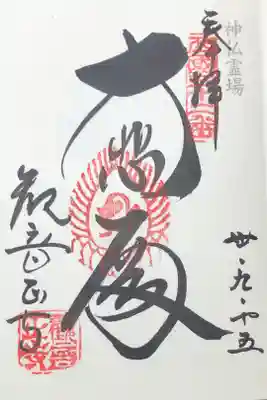 神仏霊場
奉拝
大悲殿
観音正寺
卅・九・廿五